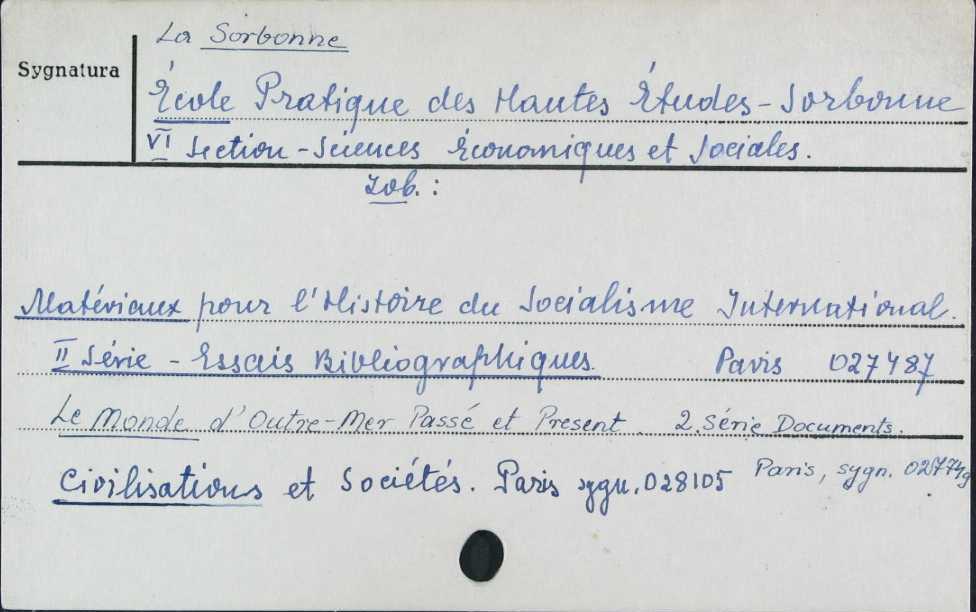 La Sorbonne
Sygnatura
École Pratique des Hautes Études - Sorbonne
VI Section - Sciences Économiques et Sociales.
Zob. :
Matériaux pour l'Histoire du Socialisme International.
II Série - Essais Bibliographiques. Paris 027487
Le Monde d'Outre-Mer Passé et Present 2. Série Documents.
Paris, sygn. 027749
Civilisations et Sociétés. Paris sygn. 028105